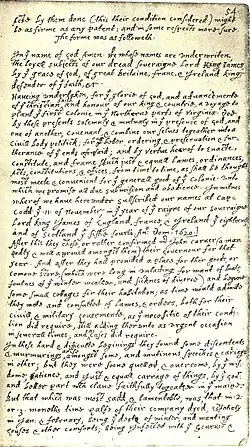 54
by them done (this their condition considered) might
be as firme as any patent; and in some respects more sure.
The forme was as followeth.
In yᵉ name of god Amen. We whose names are underwriten,
the loyall subjects of our dread soveraigne Lord King James
by yᵉ grace of god, of great Britaine, franc, & Ireland king,
defender of yᵉ faith, &c
Haveing undertaken, for yᵉ glorie of god, and advancemente
of yᵉ christian faith and honour of our king & countrie, a voyage to
plant yᵉ first colonie in yᵉ Northerne parts of Virginia. doe
by these presents solemnly & mutualy in yᵉ presence of god, and
one of another, covenant, & combine our selves togeather into a
civill body politick; for our better ordering, & preservation & fur-
therance of yᵉ ends aforesaid; and by vertue hearof to enacte,
constitute, and frame shuch just & equall lawes, ordinances,
Acts, constitutions, & offices, from time to time, as shall be thought
most meete & convenient for yᵉ generall good of yᵉ colonie: unto
which we promise all due submission and obedience. In witnes
wherof we have hereunder subscribed our names at cap-
codd yᵉ ·11· of November, in yᵉ year of yᵉ raigne of our soveraigne
Lord king James of England, france, & Ireland yᵉ eighteenth
and of Scotland yᵉ fiftie fourth. Anᵒ: Dom. 1620.
After this they chose, or rather confirmed mʳ John carver (a man
godly & well approved amongst them) their governour for that
year. And after they had provided a place for their goods, or
comone store, (which were long in unlading for want of boats,
foulnes of yᵉ winter weather, and sicknes of diverce) and begune
some small cottages for their habitation; as time would admitte
they mette and consulted of lawes, & orders, both for their
civill, & military govermente, as yᵉ necessitie of their condi-
tion did require, still adding therunto as urgent occasion
in severall times, and as cases did require.
In these hard & difficulte beginings they found some discontents
& murmurings arise amongst some, and mutinous speeches & cariags
in other; but they were soone quelled, & overcome, by yᵉ wis-
dome, patience, and just & equall carrage of things, by yᵉ Govʳ
and better part wᶜʰ clave faithfully togeather in yᵉ maine.
But that which was most sadd, & lamentable, was, that in ·2·
or ·3· moneths time halfe of their company dyed, espetialy
in Jan: & february, being yᵉ depth of winter, and wanting
houses & other comforts; being infected with yᵉ scurvie &